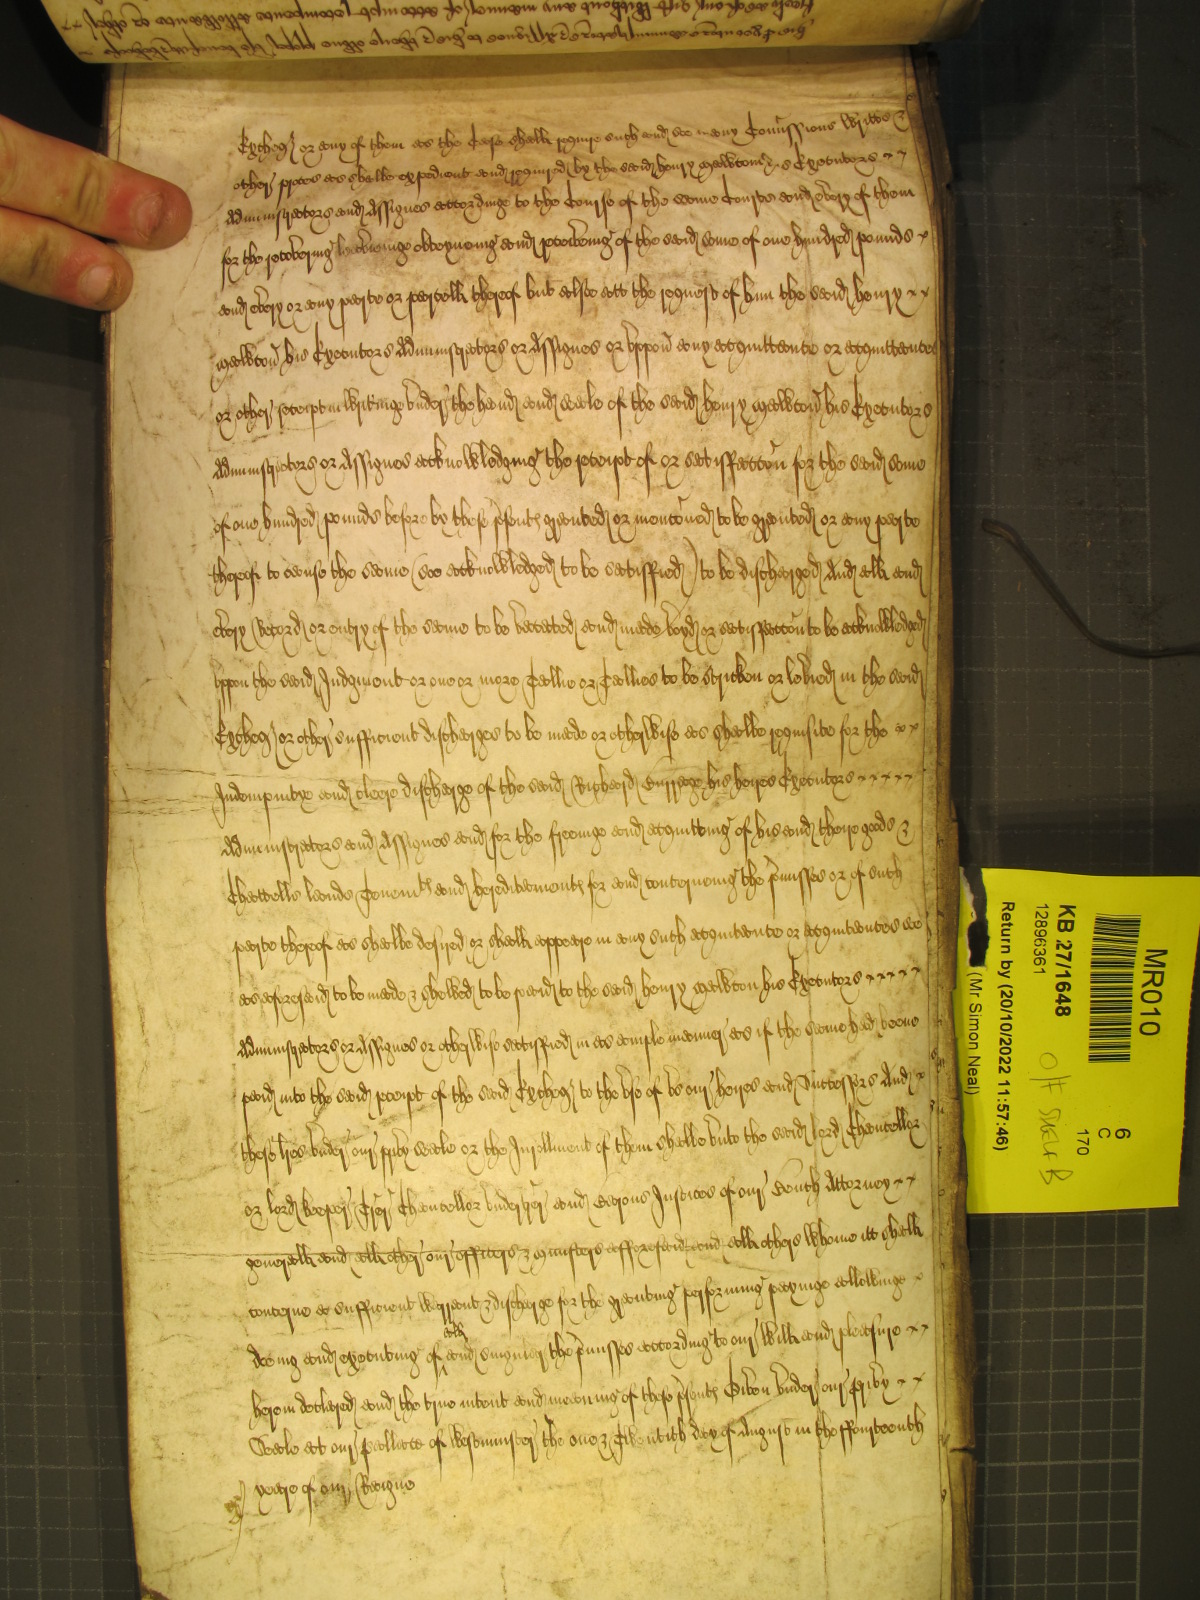 Excheqr or any of them as the Case shall require such and soe many Comissions writtes &
other proces as shalbe expedient and required by the said henry Malbton his Executors
Administrators and Assignes accordinge to the Course of the same Courts and every of them
for the recovering leavieinge obteyneing and receiveing of the said some of one hundred pounds
and every or any parte or parcell thereof but alsoe att the request of him the said henry
his Executors Administrators or Assignes or vppon any acquittance or acquittances
or other receipt in writinge vnder the hand and seale of the said henry his Executors
Administrators or Assignes acknowledging the receipt of or satisfaccon for the said some
of one hundred pounds before by these psents graunted or menconed to be graunted or any parte
thereof to cause the same (soe acknowledged to be satisffied) to be discharged And all and
every Record or entry of the same to be vacated and made voyd or satisfaccon to be acknowledged
vppon the said Judgment or one or more Tallie or Tallies to be stricken or levied in the said
Excheqr or other sufficient discharges to be made or otherwise as shalbe requisite for the
Indempnitye and cleere discharge of the said Richard his heires Executors
Administrators and Assignes and for the freeinge and acquitting of his and theire goods &
Chattells lands Tenemts and hereditaments for and concerneing the p'misses or of such
parte thereof as shalbe desired or shall appeare in any such acquittance or acquittances soe
as aforesaid to be made & shewed to be paid to the said henry his Executors
Administrators or Assignes or otherwise satisfied in as ample manner as if the same had beene
paid into the said receipt of the said Excheqr to the vse of vs our heires and Successors And
these lres vnder our privy seale or the Inrollment of them shalbe vnto the said lord Chancellor
or lord keeper Trer Chancellor vndertrer and Barons Justices of our Bench Attorney
generall and all other our officers & ministers afforesaid and all others whome itt shall
concerne a sufficient warrant & discharge for the graunting performing payinge allowinge
doeing and executing of all and singuler the p'misses according to our will and pleasure
herein declared and the true intent and meaning of these p'sents Given vnder our privy
Seale att our pallace of westminster the one & Twentith day of August in the ffourteenth
yeare of our Raigne
MR010
6
C
170
KB 27/1648
12896361
O/F Shelf B
Return by (20/10/2022 11:57:46)
(Mr Simon Neal)